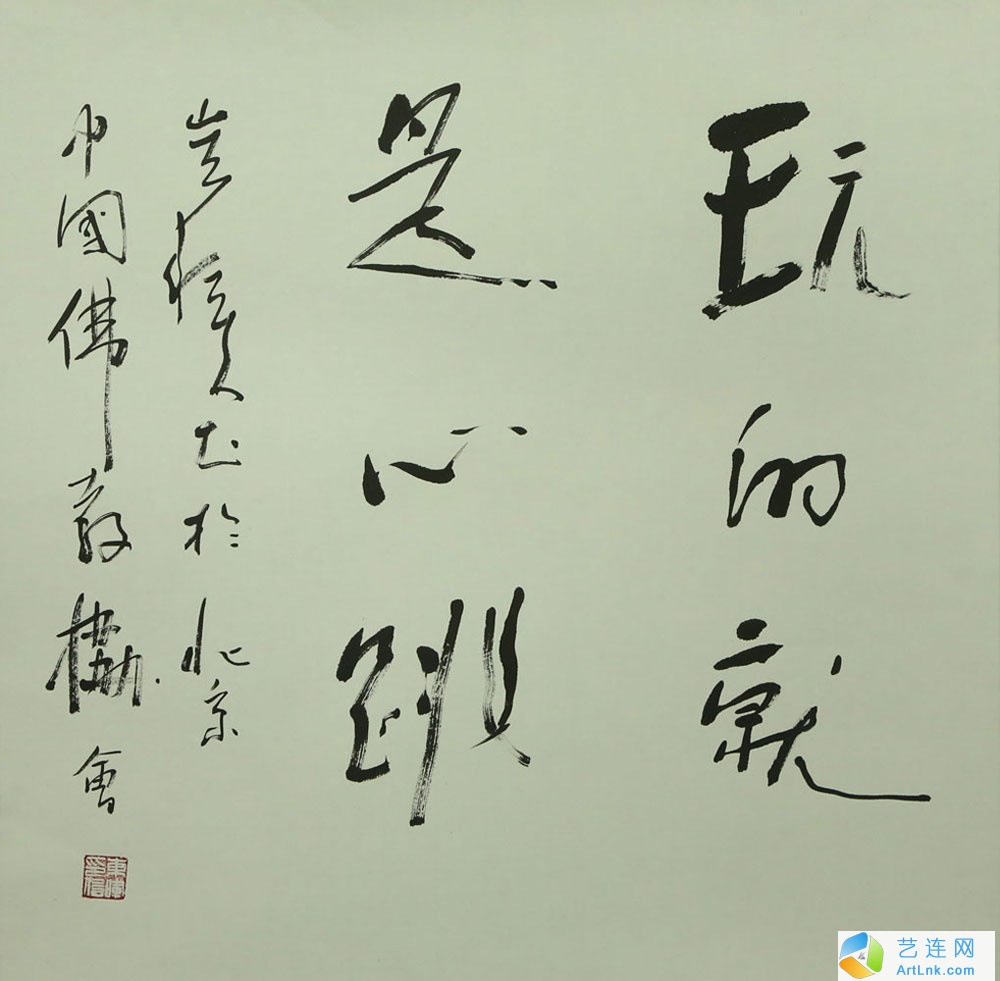 玩的就
是心跳
书於北京
中國佛教協會
艺连网
ArtLnk.com